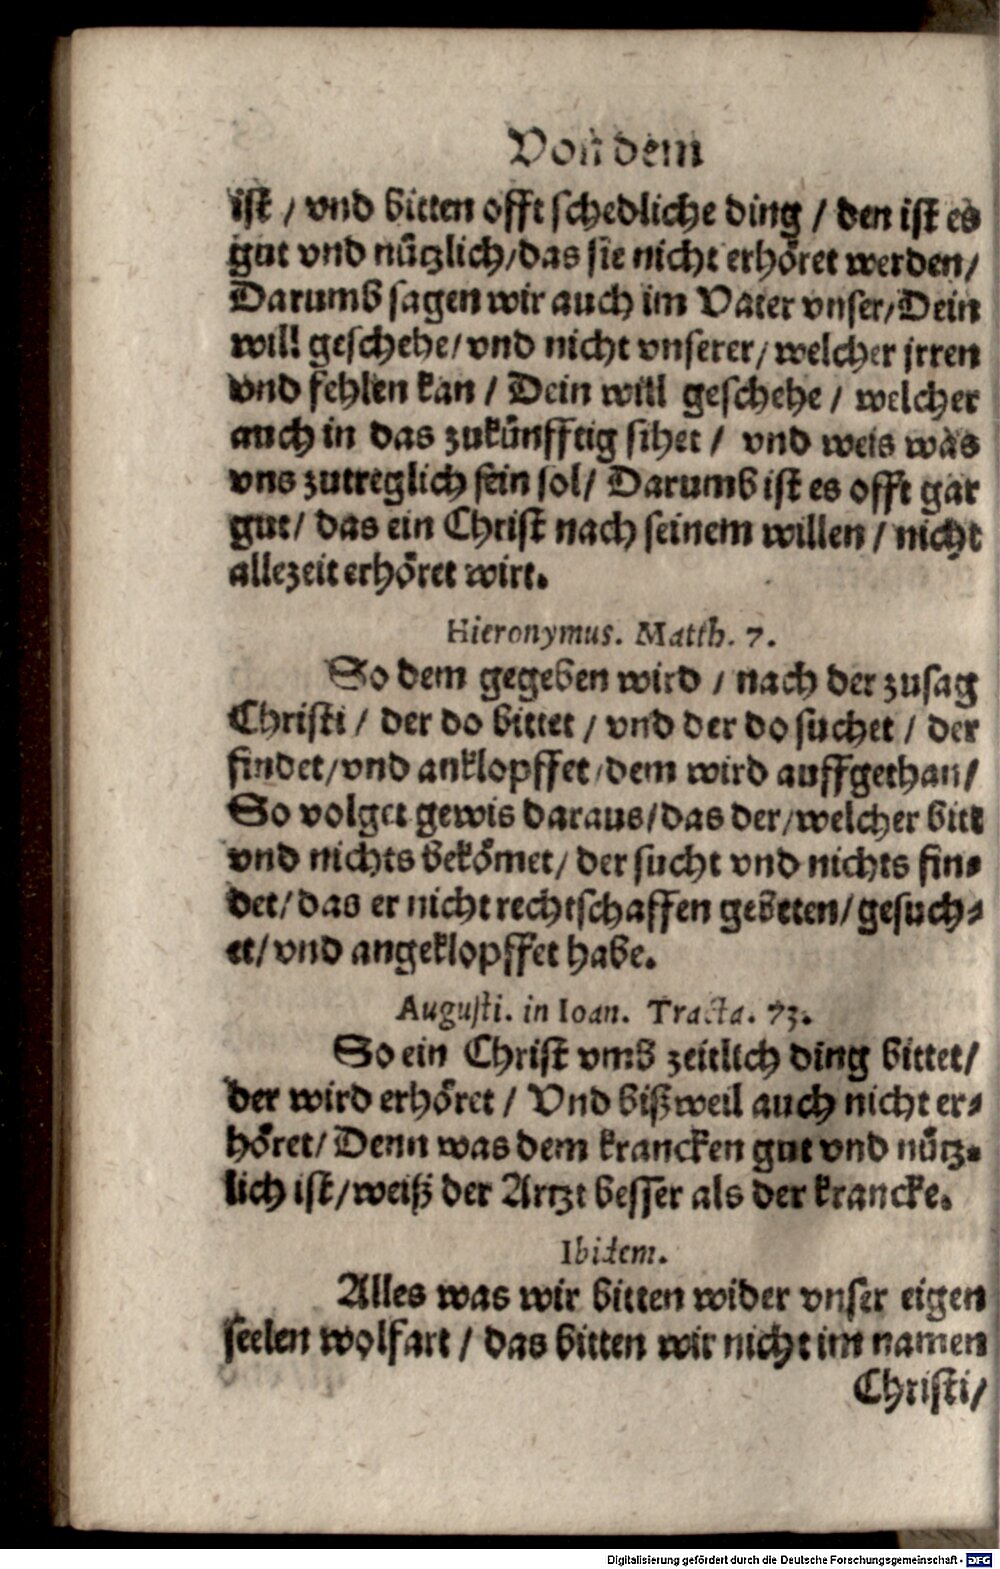 Von dem
ist / vnd bitten offt schedliche ding / den ist es
gut vnd nützlich/das sie nicht erhöret werden/
Darumb sagen wir auch im Vater vnser/Dein
will geschehe/vnd nicht vnserer/welcher jrren
vnd fehlen kan / Dein will geschehe / welcher
auch in das zukünfftig sihet / vnd weis was
vns zutreglich sein sol/ Darumb ist es offt gar
gut/ das ein Christ nach seinem willen / nicht
allezeit erhöret wirt.
Hieronymus. Matth. 7.
So dem gegeben wird / nach der zusag
Christi / der do bittet / vnd der do suchet / der
findet/vnd anklopffet/dem wird auffgethan/
So volget gewis daraus/das der/welcher bitt
vnd nichts bekömet/ der sucht vnd nichts fin-
det/das er nicht rechtschaffen gebeten/gesuch-
et/vnd angeklopffet habe.
Augusti. in Ioan. Tracta. 73.
So ein Christ vmb zeitlich ding bittet/
der wird erhöret / Vnd bißweil auch nicht er-
höret/ Denn was dem krancken gut vnd nütz-
lich ist/weiß der Artzt besser als der krancke.
Ibidem.
Alles was wir bitten wider vnser eigen
seelen wolfart / das bitten wir nicht im namen
Christi/
Digitalisierung gefördert durch die Deutsche Forschungsgemeinschaft - DFG